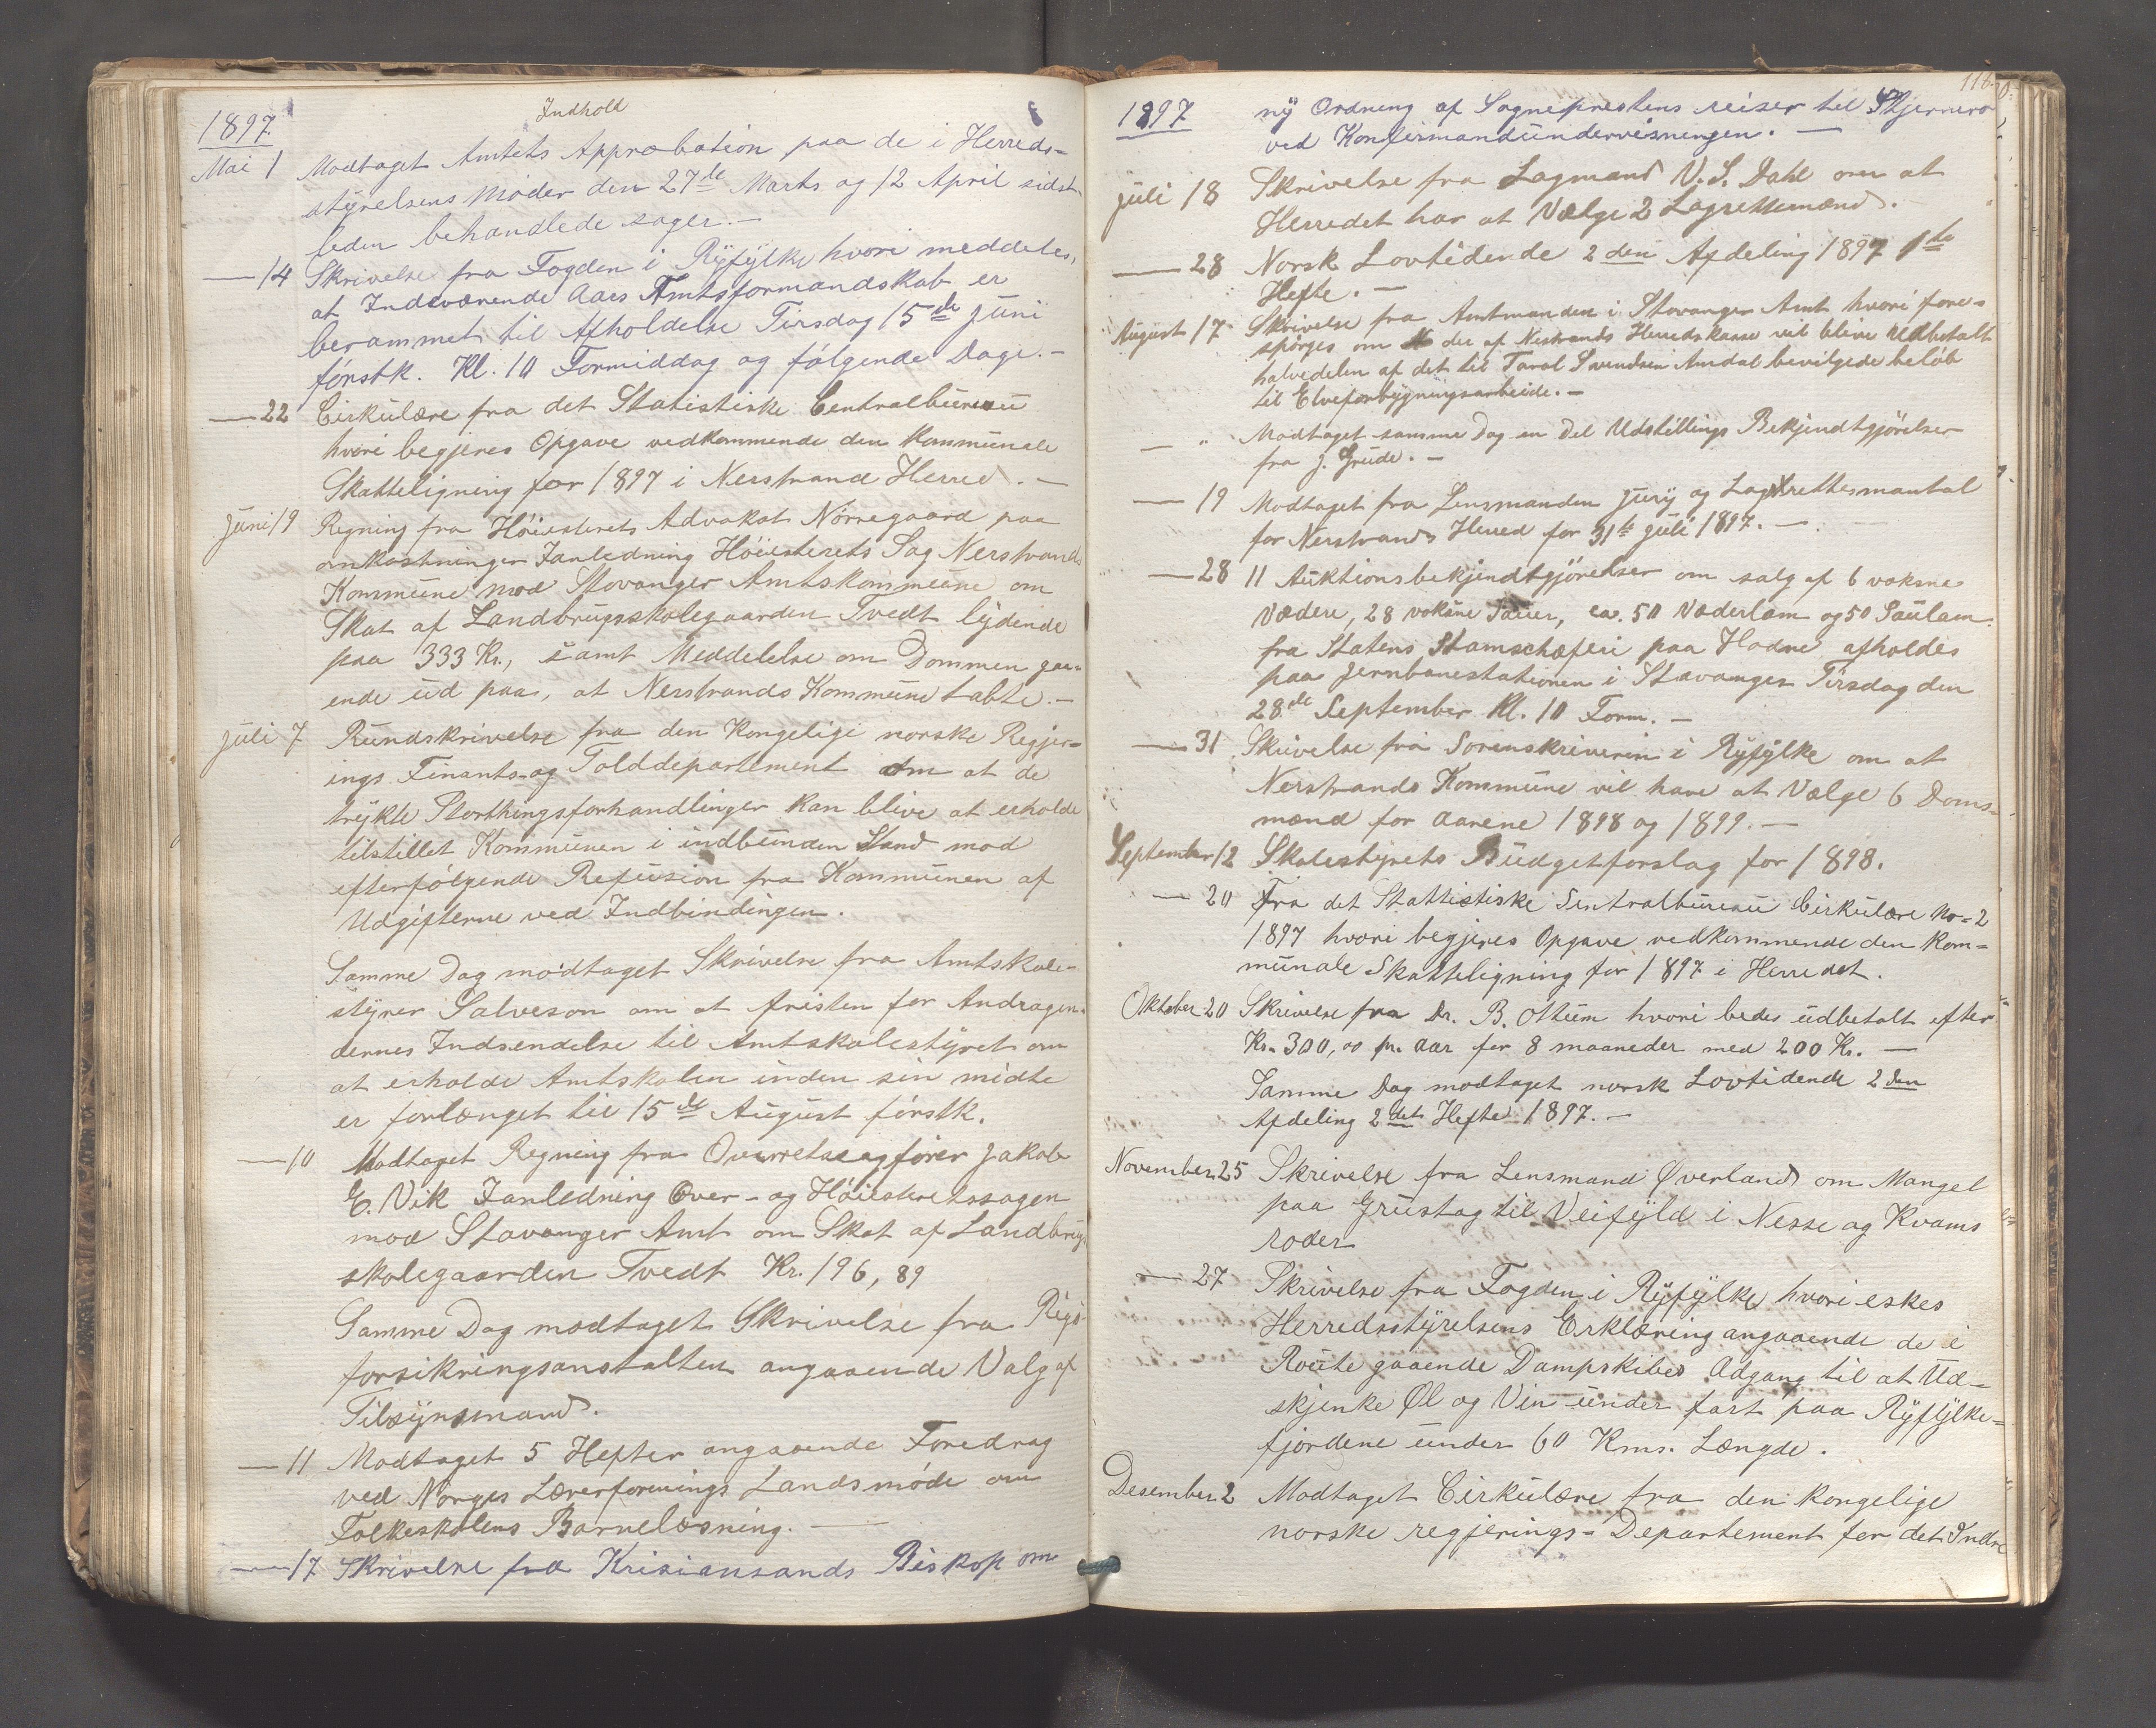 Indhold
1897
Mai 1 Modtaget Amtets Approbation paa de i Herreds-
styrelsens Møder den 27de Marts og 12 April sidst-
leden behandlede sager. —
— 14 Skrivelse fra Fogden i Ryfylke hvori meddeles,
at Indeværende Aars Amtsformandskab er
berammet til Afholdelse Tirsdag 15de Juni
førstk. Kl. 10 Formiddag og følgende Dage. —
— 22 Cirkulære fra det Statistiske Centralbureau
hvori begjeres Opgave vedkommende den kommunale
Skatteligning for 1897 i Nerstrand Herred. —
Juni 19 Regning fra Høiesterets Advokat Nørregaard paa
omkostninger Ianledning Høiesterets Sag Nerstrands
Kommune mod Stavanger Amtskommune om
Skat af Landbrugsskolegaarden Tvedt lydende
paa 333 Kr., samt Meddelelse om Dommen gaa-
ende ud paa, at Nerstrands Kommune tabte. —
Juli 7 Rundskrivelse fra den Kongelige norske Regjer-
ings Finants- og Tolddepartement om at de
trykte Storthingsforhandlinger kan blive at erholde
tilstillet Kommunen i indbunden Stand mod
efterfølgende Refusion fra Kommunen af
Udgifterne ved Indbindingen.
Samme Dag modtaget Skrivelse fra Amtskole-
styrer Salveson om at fristen for Andragen-
dernes Indsendelse til Amtskolestyret om
at erholde Amtskolen inden sin midte
er forlænget til 15de August førstk.
— 10 Modtaget Regning fra Overretssagfører Jakob
E. Vik Ianledning Over- og Høiesteretssagen
mod Stavanger Amt om Skat af Landbrug-
skolegaarden Tvedt Kr. 196,89
Samme Dag modtaget Skrivelse fra Rigs-
forsikringsanstalten angaaende Valg af
Tilsynsmand.
— 11 Modtaget 5 Hefter angaaende Foredrag
ved Norges Lærerforenings Landsmøde om
Folkeskolens Barnelæsning. —
— 17 Skrivelse fra Krisiansands Biskop om
116
1897 ny Ordning af Sogneprestens reiser til Skjernerø
ved Konfirmandundervisningen. —
Juli 18 Skrivelse fra Lagmand V. S. Dahl om at
Herredet har at Vælge 2 Lagrettemænd.
— 28 Norsk Lovtidende 2den Afdeling 1897 1ste
Hefte. —
August 17 Skrivelse fra Amtmanden i Stavanger Amt hvori fore-
spørges om der af Nestrands Herredskasse vil blive Udbetalt
halvedelen af det til Taral Svendsen Amdal bevilgede beløb
til Elveforbygningsarbeide. —
— " Modtaget samme Dag en Del Udstillings Bekjendtgjørelser
fra J. Grude. —
— 19 Modtaget fra Lensmanden Jury og Lagrettesmantal
for Nerstrands Herred for 31te Juli 1897. —
— 28 11 Auktionsbekjendtgjørelser om salg af 6 voksne
Vædere, 28 voksne Sauer, ca. 50 Væderlam og 50 Saulam
fra Statens Stamschæferi paa Hodne afholdes
paa Jernbanestationen i Stavanger Tirsdag den
28de September Kl. 10 Form. —
— 31 Skrivelse fra Sorenskriveren i Ryfylke om at
Nerstrands Kommune vil have at Vælge 6 Doms-
mænd for Aarene 1898 og 1899. —
September 12 Skolestyrets Budgetforslag for 1898.
— 20 Fra det Stattistiske Sentralbureau Cirkulære No = 2
1897 hvori begjeres Opgave vedkommende den kom-
munale Skatteligning for 1897 i Herredet.
Oktober 20 Skrivelse fra Dr. B. Ottum hvori bedes udbetalt efter
Kr. 300,00 pr. Aar for 8 maaneder med 200 Kr. —
Samme Dag modtaget norsk Lovtidende 2den
Afdeling 2det Hefte 1897. —
November 25 Skrivelse fra Lensmand Øverland om Mangel
paa Grustag til Veifyld i Nesse og Kvams
roder
— 27 Skrivelse fra Fogden i Ryfylke hvori eskes
Herredsstyrelsens Erklæring angaaende de i
Route gaaende Dampskibes Adgang til at Ud-
skjenke Øl og Vin under fart paa Ryfylke-
fjordene under 60 Kms. Længde.
Desember 2 Modtaget Cirkulære fra den kongelige
norske regjerings-Departement for det Indre